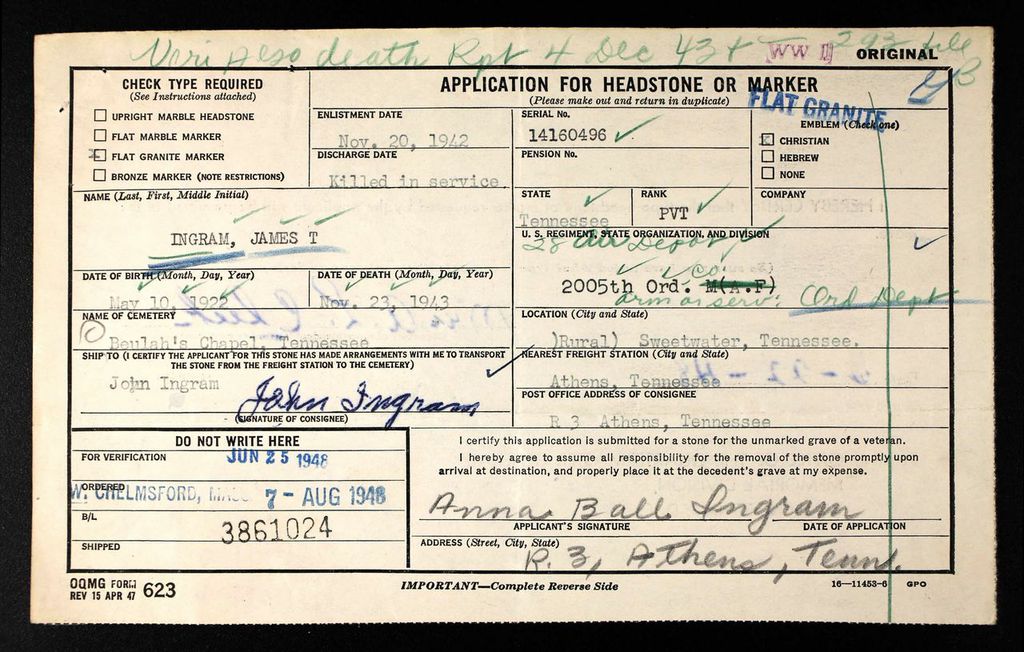 Veri Also death Rpt 4 Dec 43 +
WW II
ORIGINAL
CHECK TYPE REQUIRED
(See Instructions attached)
UPRIGHT MARBLE HEADSTONE
FLAT MARBLE MARKER
x FLAT GRANITE MARKER
BRONZE MARKER (NOTE RESTRICTIONS)
APPLICATION FOR HEADSTONE OR MARKER
(Please make out and return in duplicate)
FLAT GRANITE
ENLISTMENT DATE
Nov. 20, 1942
DISCHARGE DATE
Killed in service.
SERIAL No.
14160496
PENSION No.
EMBLEM (Check one)
x CHRISTIAN
HEBREW
NONE
NAME (Last, First, Middle Initial)
INGRAM, JAMES T
STATE
Tennessee
RANK
PVT
COMPANY
U. S. REGIMENT, STATE ORGANIZATION, AND DIVISION
28 Air Depot
2005th Ord. M(A.F) Co
Ord Dept
DATE OF BIRTH (Month, Day, Year)
May 10, 1922
DATE OF DEATH (Month, Day, Year)
Nov. 23, 1943
NAME OF CEMETERY
Beulah's Chapel, Tennessee
LOCATION (City and State)
)Rural) Sweetwater, Tennessee.
SHIP TO (I CERTIFY THE APPLICANT FOR THIS STONE HAS MADE ARRANGEMENTS WITH ME TO TRANSPORT
THE STONE FROM THE FREIGHT STATION TO THE CEMETERY)
John Ingram
John Ingram
(SIGNATURE OF CONSIGNEE)
NEAREST FREIGHT STATION (City and State)
Athens, Tennessee
POST OFFICE ADDRESS OF CONSIGNEE
R 3 Athens, Tennessee
DO NOT WRITE HERE
FOR VERIFICATION
JUN 25 1948
ORDERED
W. CHELMSFORD, MASS 7 - AUG 1948
B/L
3861024
SHIPPED
I certify this application is submitted for a stone for the unmarked grave of a veteran.
I hereby agree to assume all responsibility for the removal of the stone promptly upon
arrival at destination, and properly place it at the decedent's grave at my expense.
Anna Ball Ingram
APPLICANT'S SIGNATURE
DATE OF APPLICATION
ADDRESS (Street, City, State)
R. 3, Athens, Tenn.
OQMG FORM
REV 15 APR 47 623
IMPORTANT—Complete Reverse Side
16—11453-6 GPO